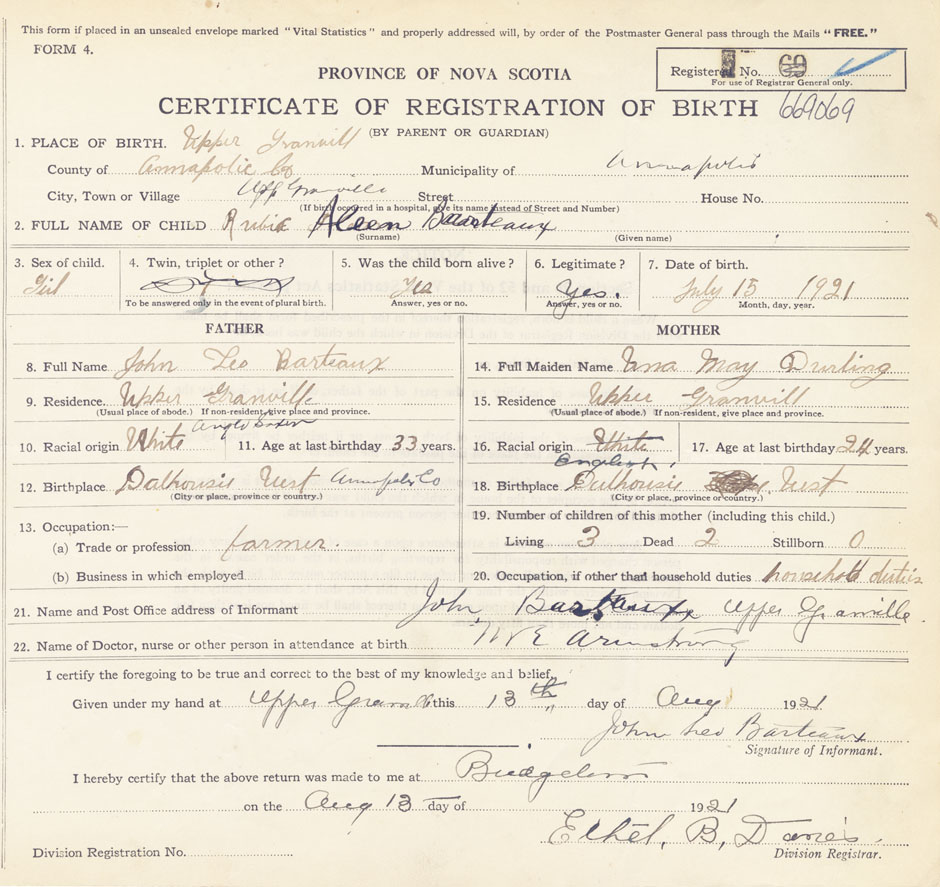 This form if placed in an unsealed envelope marked "Vital Statistics" and properly addressed will, by order of the Postmaster General pass through the Mails "FREE."
FORM 4.
Registered No. 69
For use of Registrar General only.
PROVINCE OF NOVA SCOTIA
CERTIFICATE OF REGISTRATION OF BIRTH 669069
(BY PARENT OR GUARDIAN)
1. PLACE OF BIRTH. Upper Granvill
County of Annapolic Co Municipality of Annapolis
City, Town or Village Upp Granville Street House No.
(If birth occurred in a hospital, give its name instead of Street and Number)
2. FULL NAME OF CHILD Rubie Aleen Barteaux
(Surname) (Given name)
3. Sex of child. 4. Twin, triplet or other? 5. Was the child born alive? 6. Legitimate? 7. Date of birth.
Girl Yes Yes. July 15 1921
To be answered only in the event of plural birth. Answer, yes or no. Answer, yes or no. Month, day, year.
FATHER
8. Full Name John Leo Barteaux
9. Residence. Upper Granvill.
(Usual place of abode.) If non-resident, give place and province.
Anglo Saxon
10. Racial origin White 11. Age at last birthday 33 years.
12. Birthplace Dalhousie West Annapolis Co
(City or place, province or country.)
13. Occupation:—
(a) Trade or profession farmer.
(b) Business in which employed
MOTHER
14. Full Maiden Name Una May Durling
15. Residence Upper Granvill
(Usual place of abode.) If non-resident, give place and province.
16. Racial origin White 17. Age at last birthday 24 years.
English
18. Birthplace Dalhousie West
(City or place, province or country.)
19. Number of children of this mother (including this child.)
Living 3 Dead 2 Stillborn 0
20. Occupation, if other than household duties household duties
21. Name and Post Office address of Informant John Barteaux Upper Granville
22. Name of Doctor, nurse or other person in attendance at birth Armstrong
I certify the foregoing to be true and correct to the best of my knowledge and belief.
Given under my hand at Upper Granvill this 13th day of Aug 1921
John Leo Barteaux
Signature of Informant.
I hereby certify that the above return was made to me at Bridgetown
on the Aug 13 day of 1921
Ethel, B,
Division Registrar.
Division Registration No.